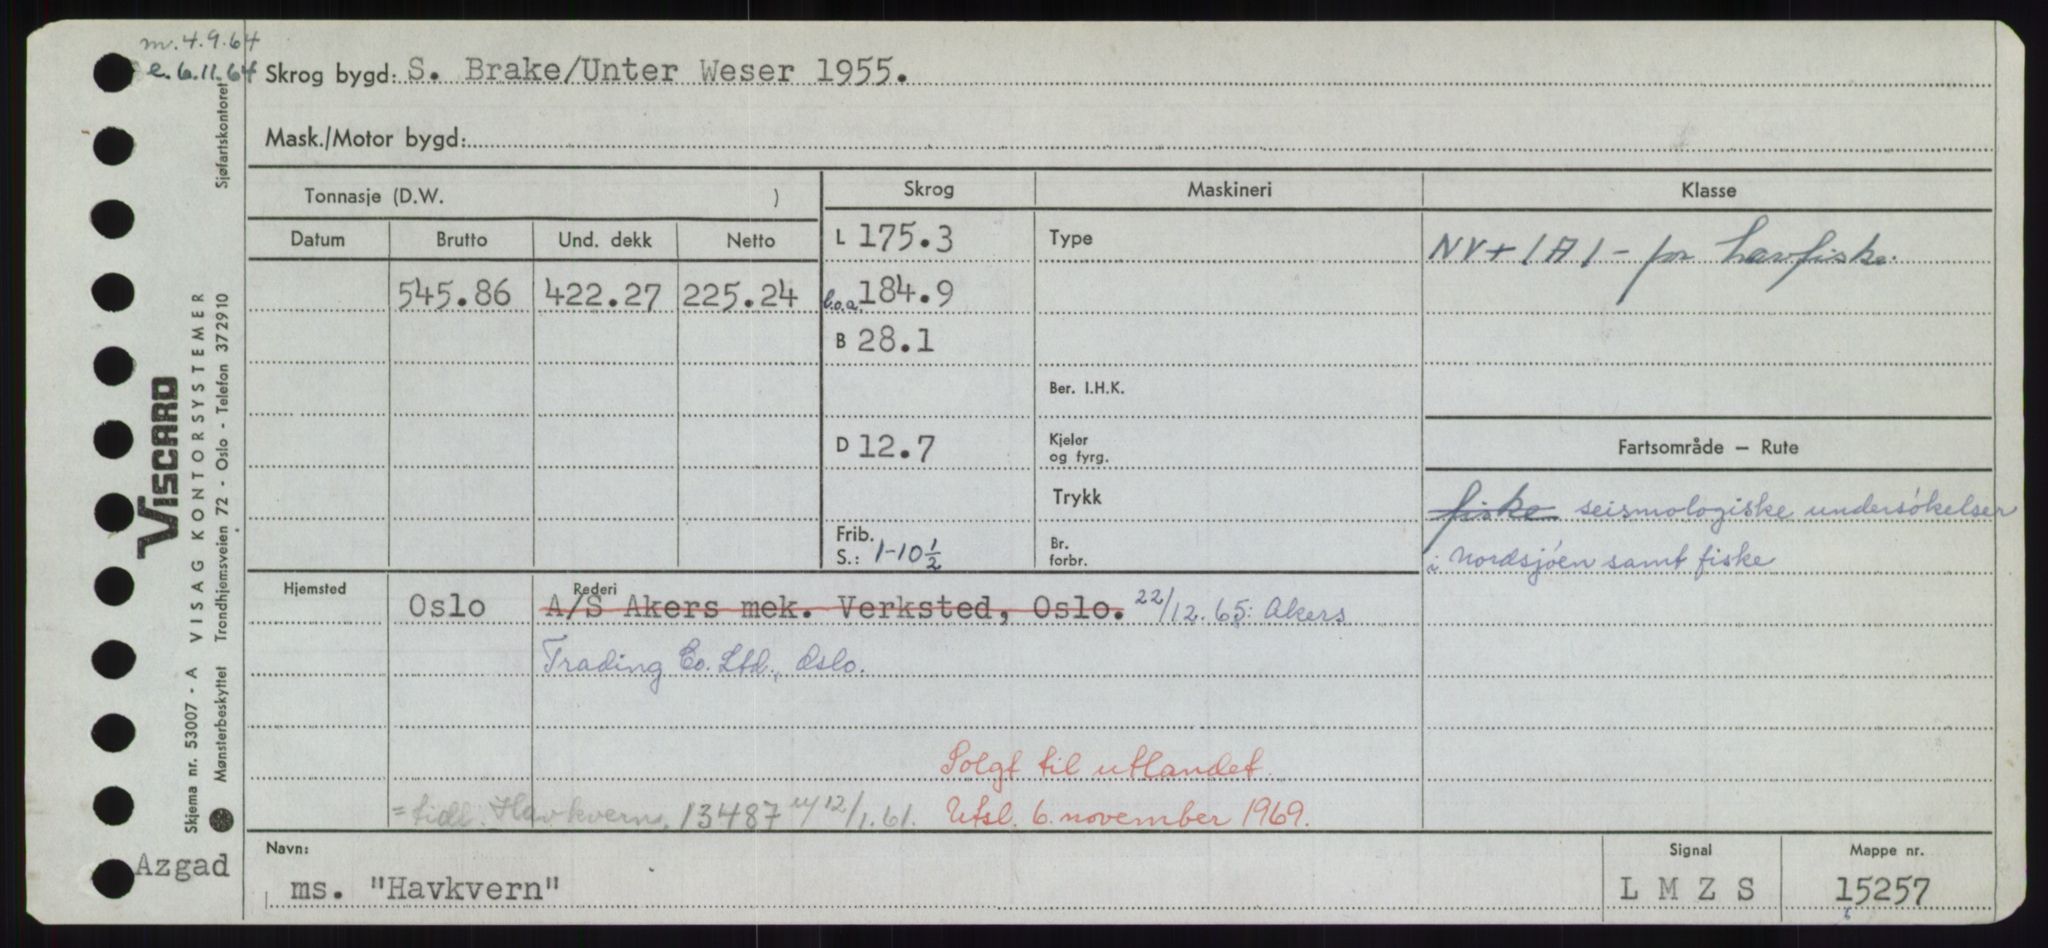 m. 4.9.64
e. 6.11.64
Skrog bygd: S. Brake/Unter Weser 1955.
Mask./Motor bygd:
Tonnasje (D.W. )
Skrog Maskineri Klasse
Datum Brutto Und. dekk Netto
545.86 422.27 225.24
L 175.3
l.o.a. 184.9
B 28.1
D 12.7
Frib.
S.: 1-10 1/2
Type
Ber. I.H.K.
Kjeler
og fyrg.
Trykk
Br.
forbr.
NV+1A1 - for havfiske.
Fartsområde — Rute
fiske seismologiske undersökelser
i Nordsjöen samt fiske
Hjemsted Rederi
Oslo A/S Akers mek. Verksted, Oslo. 22/12.65: Akers
Trading Co. Ltd., Oslo.
Solgt til utlandet.
= tidl. Havkvern, 13487 12/1.61. Utsl. 6. november 1969.
Navn:
ms. "Havkvern"
Signal
L M Z S
Mappe nr.
15257
Azgad
Sjøfartskontoret
VISCARD
VISAG KONTORSYSTEMER
Trondhjemsveien 72 - Oslo - Telefon 372910
Skjema nr. 53007 - A
Mønsterbeskyttet